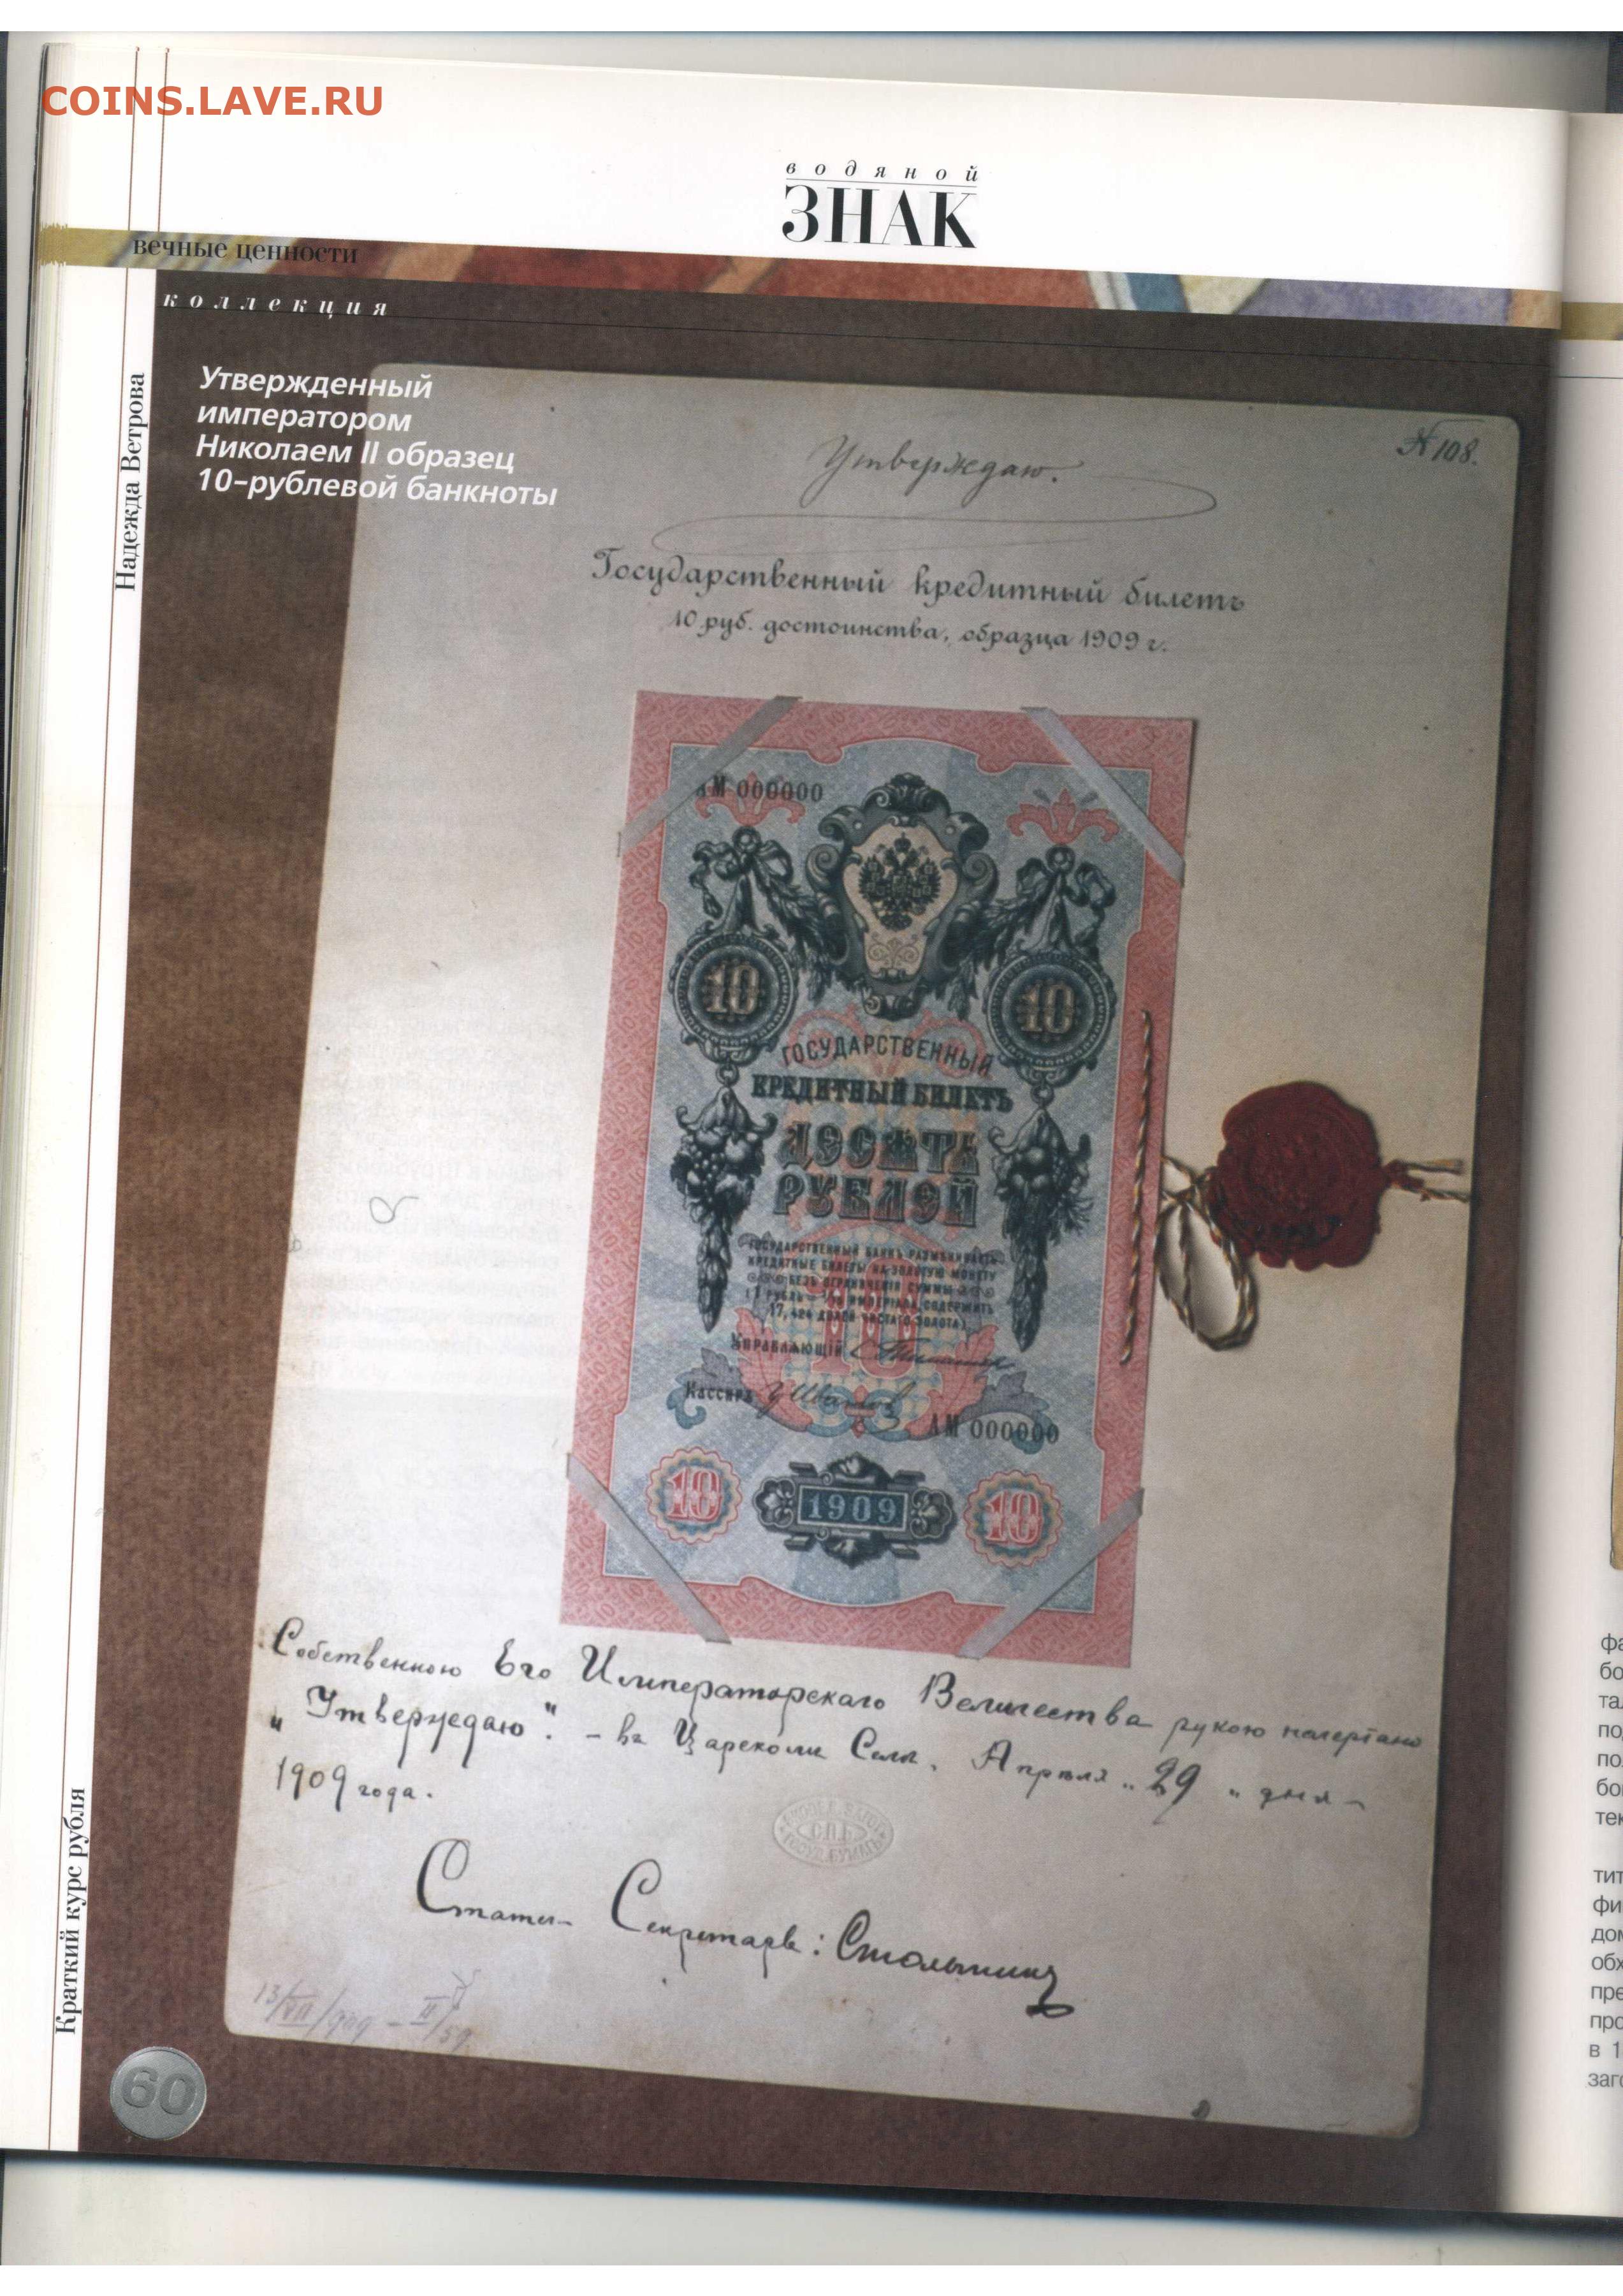 COINS.LAVE.RU
водяной
ЗНАК
вечные ценности
коллекция
Надежда Ветрова
Утвержденный
императором
Николаем II образец
10-рублевой банкноты
№ 108.
Утверждаю.
Государственный кредитный билетъ
10 руб. достоинства, образца 1909 г.
АМ 000000
10
10
ГОСУДАРСТВЕННЫЙ
КРЕДИТНЫЙ БИЛЕТЪ
ДЕСЯТЬ
РУБЛЕЙ
ГОСУДАРСТВЕННЫЙ БАНКЪ РАЗМѢНИВАЕТЪ
КРЕДИТНЫЕ БИЛЕТЫ НА ЗОЛОТУЮ МОНЕТУ
БЕЗЪ ОГРАНИЧЕНІЯ СУММЫ
(1 РУБЛЬ = 1/15 ИМПЕРІАЛА, СОДЕРЖИТЪ
17,424 ДОЛЕЙ ЧИСТАГО ЗОЛОТА)
10
Управляющій
Кассиръ
АМ 000000
10
1909
10
Собственною Его Императорскаго Величества рукою начертано
„Утверждаю". – въ Царскомъ Селѣ, Апрѣля „29" дня
1909 года.
С.П.Б.
Статсъ-Секретарь: Столыпинъ
Краткий курс рубля
60
фа
бо
та
по
по
бо
тек
тит
фи
дом
обх
пре
про
в 1
заго